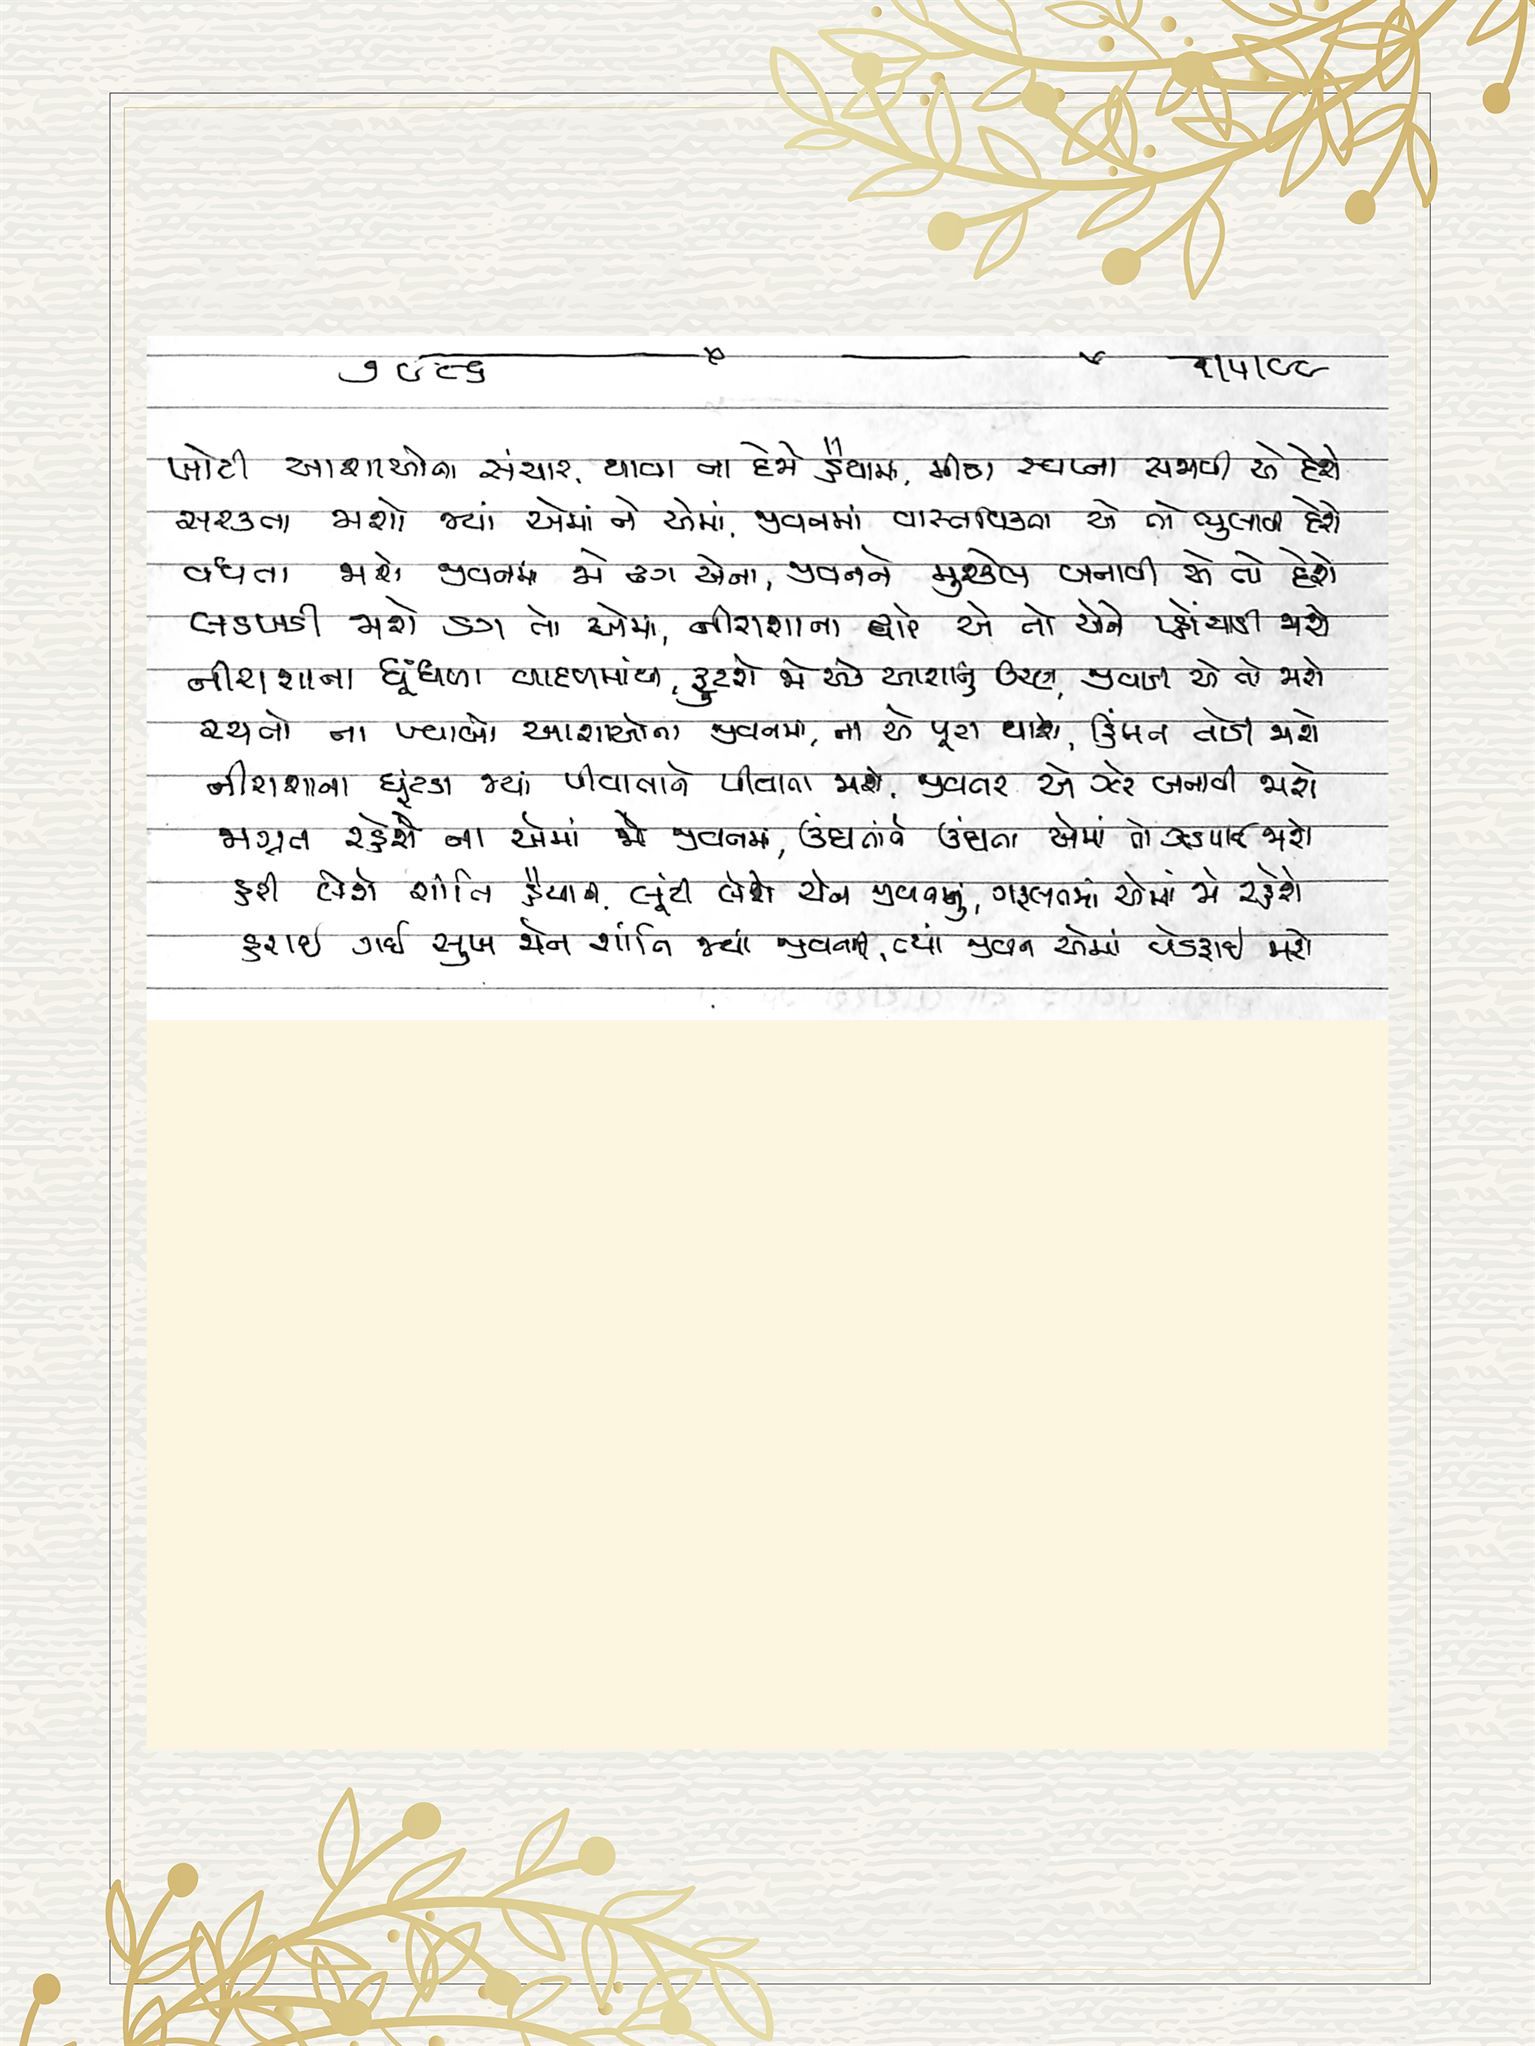 ૭૯૯૬ ૨/૫/૯૯
ખોટી આશાઓના સંચાર, થાવા ના દેજે હૈયામાં, મીઠા સ્વપ્ના સજાવી એ દેશે
સરકતા જાશો જ્યાં એમાં ને એમાં, જીવનમાં વાસ્તવિકતા એ તો ભુલાવી દેશે
વધતા જાશે જીવનમાં જે ડગ એના, જીવનને મુશ્કેલ બનાવી એ તો દેશે
લડખડી જાશે ડગ તો એમાં, નીરાશાના દ્વારે એ તો એને પ્હોંચાડી જાશે
નીરાશાના ધૂંધળા વાદળમાંથી, ફુટશે જે એક આશાનું કિરણ, જીવાડી એ તો જાશે
રચજો ના ખ્યાલો આશાઓના જીવનમાં, ના એ પૂરા થાશે, હિંમત તોડી જાશે
નીરાશાના ઘૂંટડા જ્યાં પીવાતાને પીવાતા જાશે, જીવતર એ ઝેર બનાવી જાશે
જાગ્રત રહેશે ના એમાં જો જીવનમાં, ઉંઘતાંને ઉંઘતા એમાં તો ઝડપાઈ જાશે
હરી લેશે શાંતિ હૈયાની, લૂંટી લેશે ચેન જીવનનું, ગફલતમાં એમાં જે રહેશે
હરાઈ ગઈ સુખ ચેન શાંતિ જ્યાં જીવનની, ત્યાં જીવન એમાં વેડફાઈ જાશે